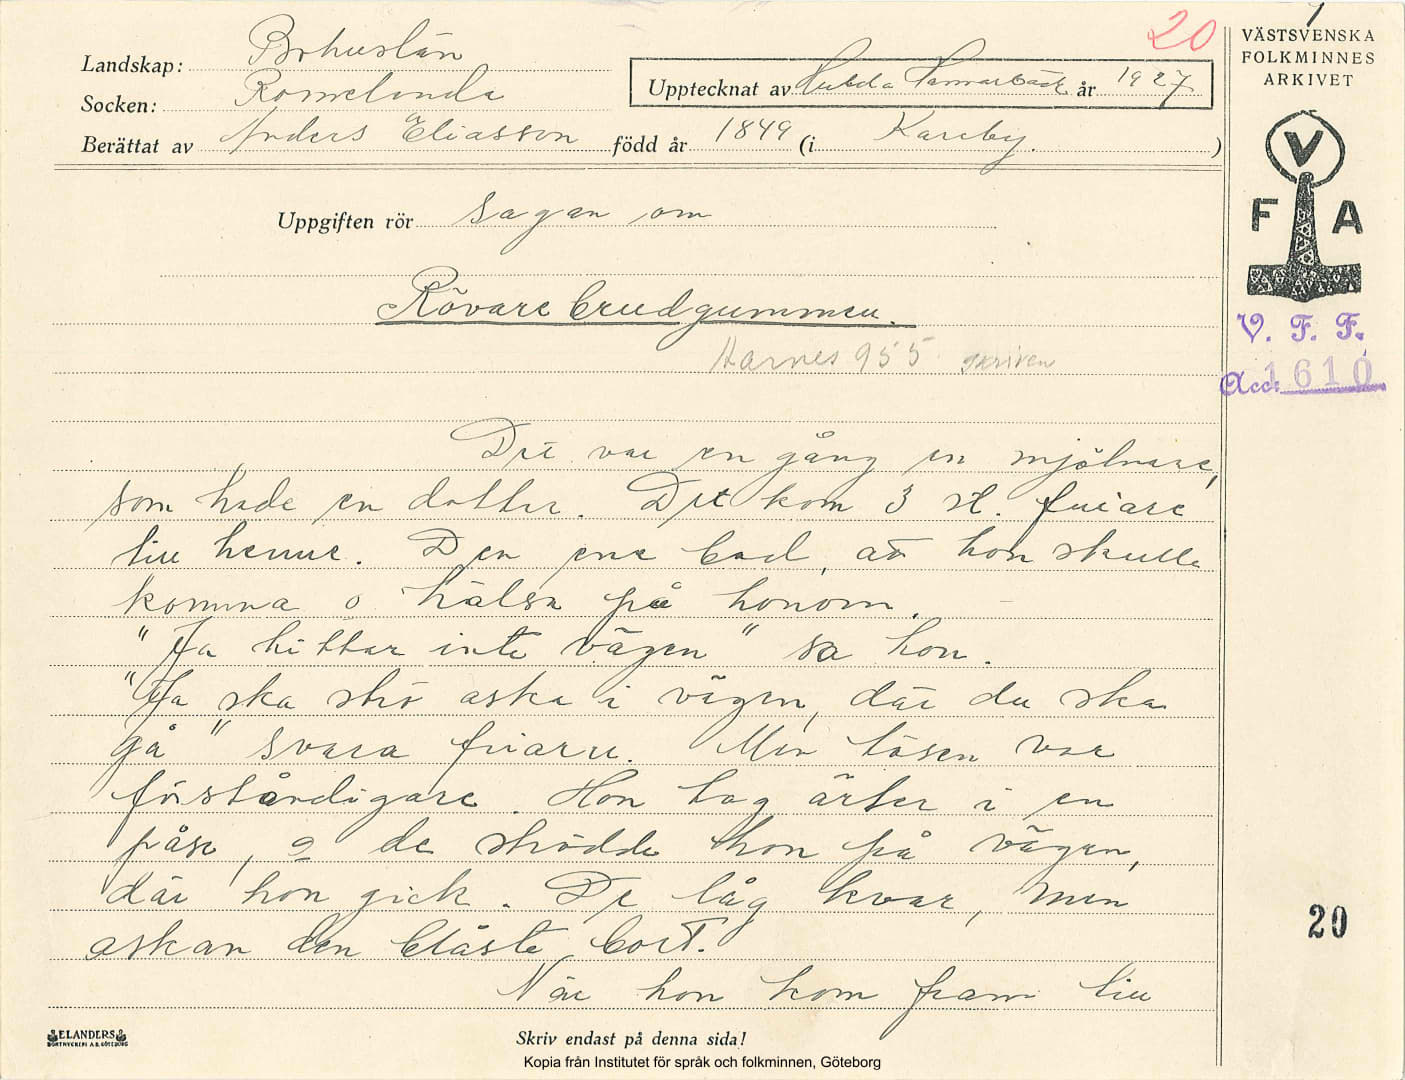 20
Landskap: Bohuslän
Socken: Romelanda
Upptecknat av Hulda Hammarbäck år 1927
Berättat av Anders Eliasson född år 1849 (i Kareby.)
VÄSTSVENSKA
FOLKMINNES
ARKIVET
V
F A
V. F. F.
Acc: 1610
Uppgiften rör Sagan om
Rövarebrudgummen.
Aarnes 955 skriven
Det var en gång en mjölnare,
som hade en dotter. Det kom 3 st. friare
till henne. Den ene bad, att hon skulle
komma o hälsa på honom.
"Ja hittar inte vägen" sa hon.
"Ja ska strö aska i vägen, där du ska
gå" svara friaren. Men tösen var
förståndigare. Hon tog ärter i en
påse, o de strödde hon på vägen,
där hon gick. De låg kvar, men
askan den blåste bort.
När hon kom fram till
20
ELANDERS
BOKTRYCKERI A.B. GÖTEBORG
Skriv endast på denna sida!
Kopia från Institutet för språk och folkminnen, Göteborg